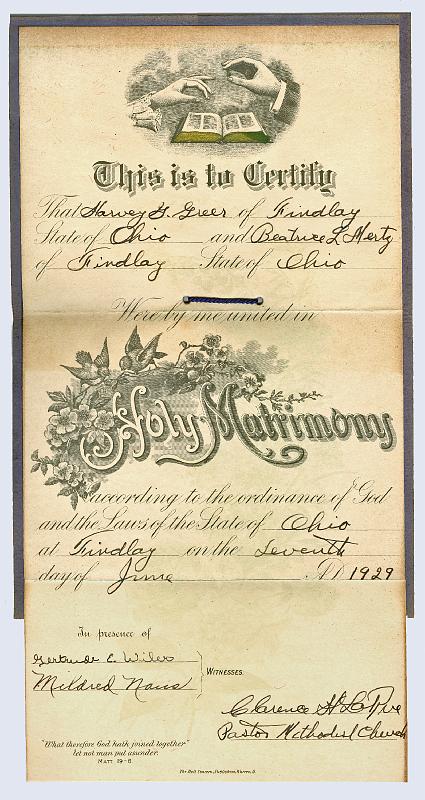 This is to Certify
That Harvey G. Greer of Findlay
State of Ohio and Beatrice L Mertz
of Findlay State of Ohio
Were by me united in
Holy Matrimony
according to the ordinance of God
and the Laws of the State of Ohio
at Findlay on the Seventh
day of June A.D. 1929
In presence of
Gertrude E. Wiles
Mildred
WITNESSES.
Clarence
Pastor Methodist Church
"What therefore God hath joined together"
let not man put asunder.
MATT 19-6